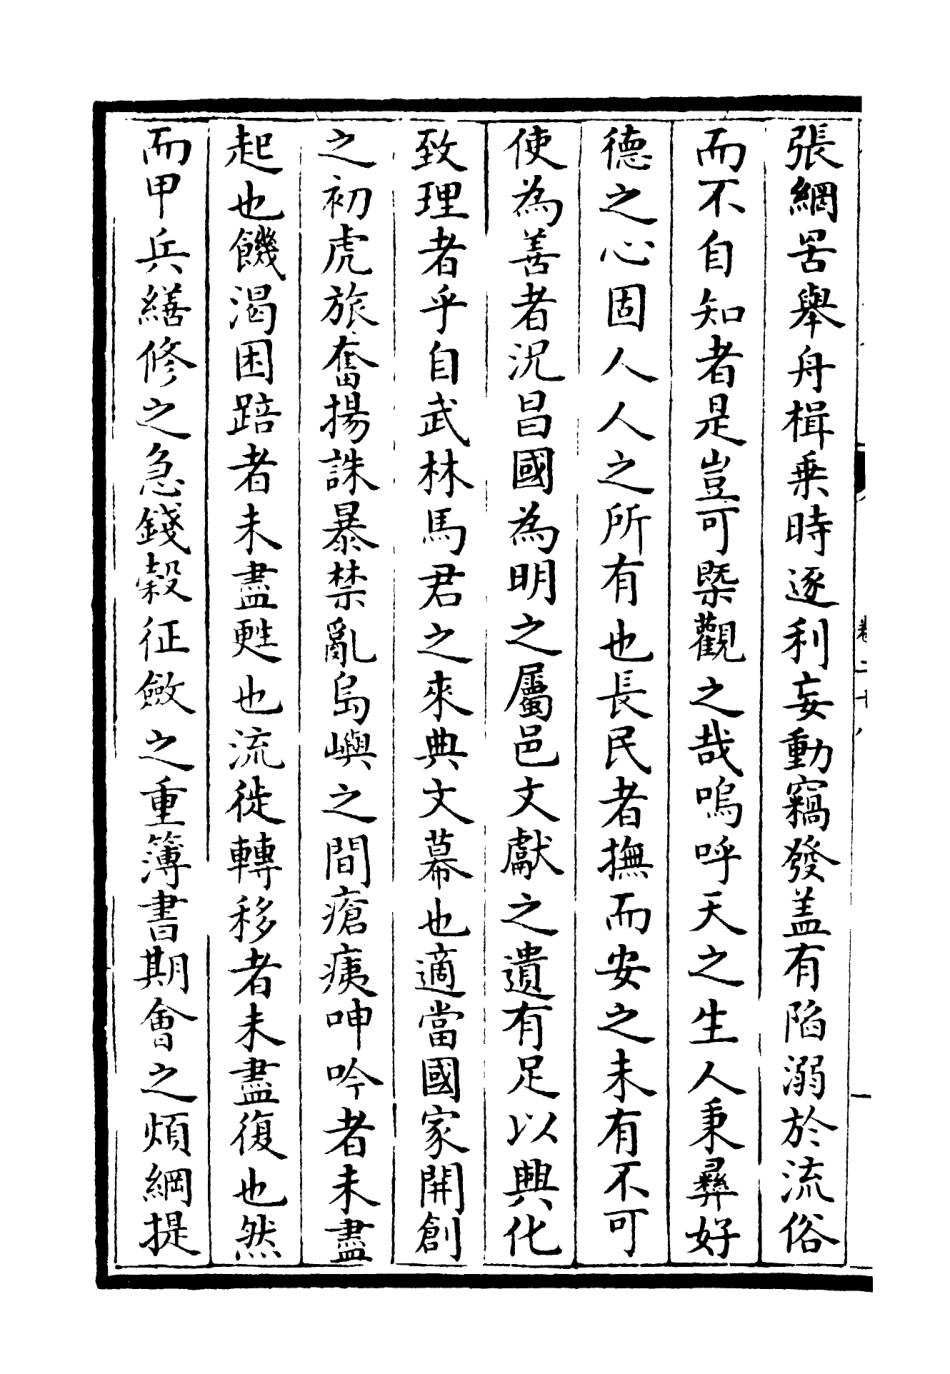 張網罟舉舟楫乗時逐利妄動竊發盖有陷溺於流俗
而不自知者是豈可槩觀之哉嗚呼天之生人秉彝好
德之心固人人之所有也長民者撫而安之未有不可
使為善者況昌國為明之屬邑文獻之遺有足以興化
致理者乎自武林馬君之來典文幕也適當國家開創
之初虎旅奮揚誅暴禁亂島嶼之間瘡痍呻吟者未盡
起也饑渴困踣者未盡甦也流徙轉移者未盡復也然
而甲兵繕修之急錢糓征斂之重簿書期會之煩綱提